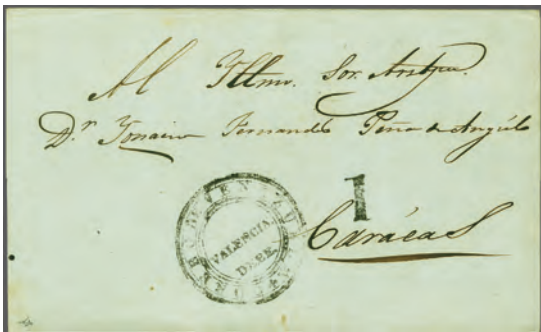 Al Yllmo. Sor. Arzbpo.
Dr. Ygnacio Fernandez Peña & Angúlo
1
Carácas
VENEZU
VALENCIA
DEBE.